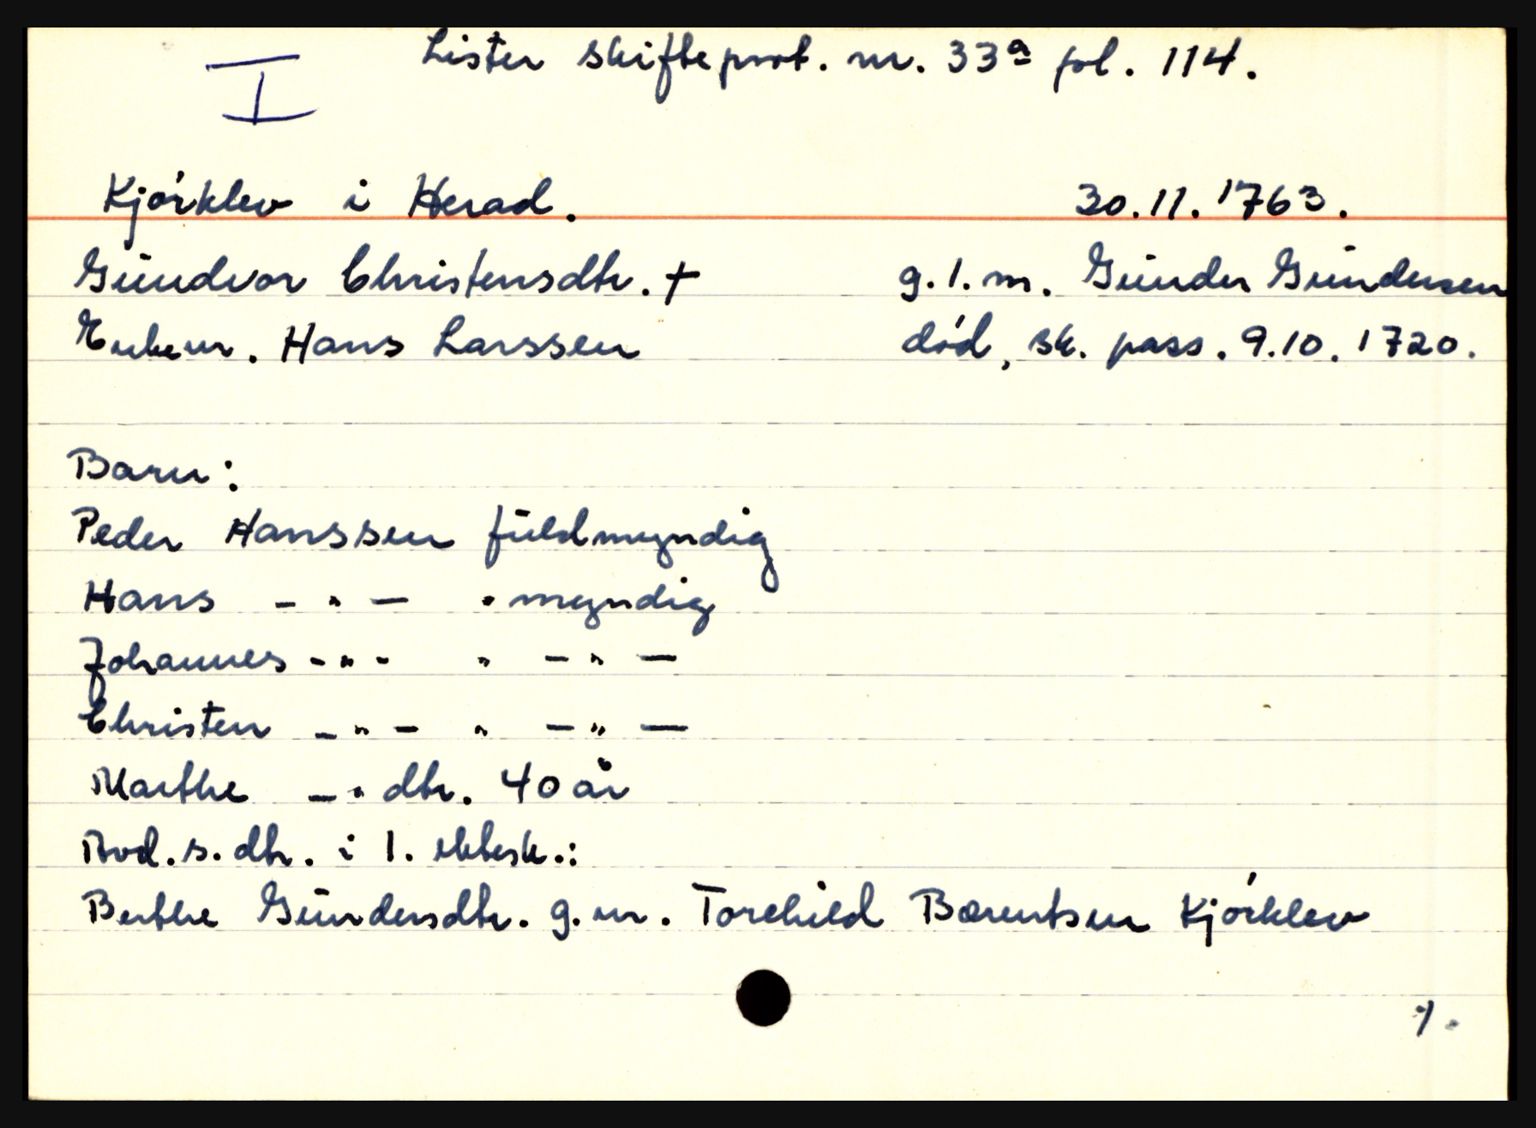 Lister skifteprot. nr. 33a fol. 114.
I
Kjørklev i Herad. 30.11.1763.
Gundvor Christensdtr. † g.1.m. Gunder Gundersen
Enkem. Hans Larssen død, sk. pass. 9.10.1720.
Barn:
Peder Hanssen fuldmyndig
Hans - " - " myndig
Johannes - " - " - " -
Christen - " - " - " -
Marthe - " dtr. 40 år
Avd. s. dtr. i 1. ektesk.:
Berthe Gundersdtr. g.m. Torchild Bærentsen Kjørklev